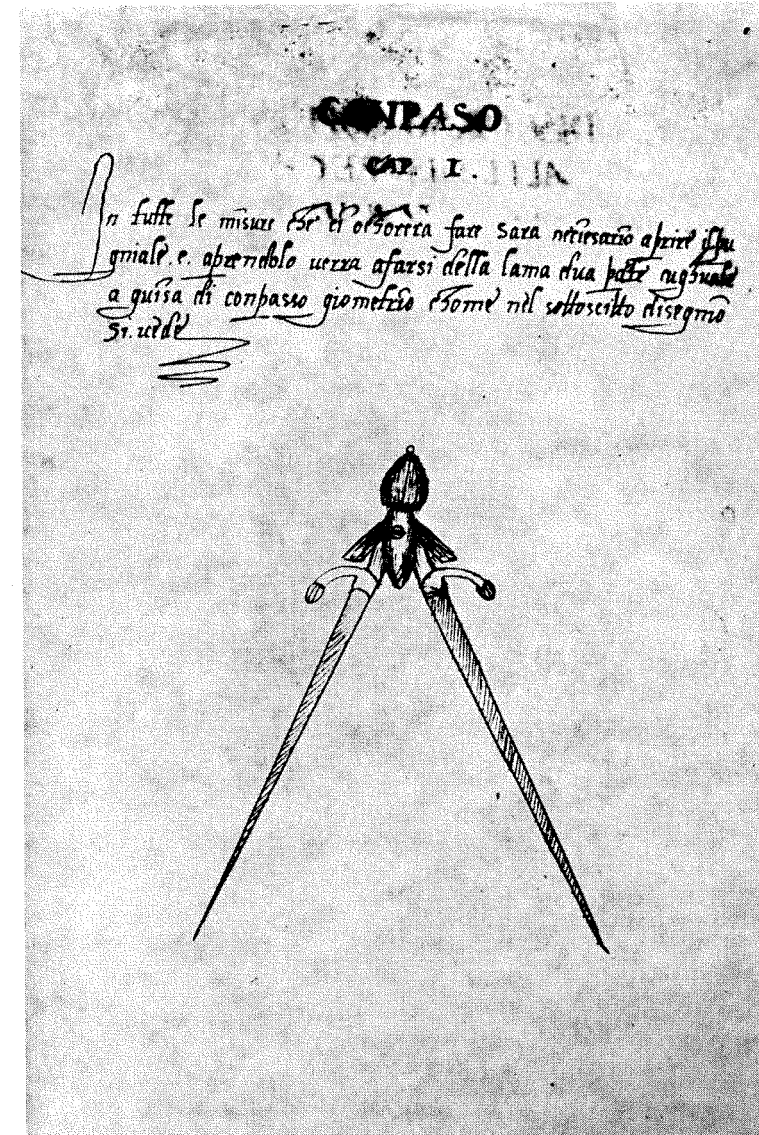 CONPASO
CAP. I.
In tutte le misure che ci ochorera fare sara neciesario aprire il pu
gniale. e. aprendolo verra afarsi della lama dua parte
a guisa di conpasso giometrico chome nel sottoscitto disegnio
si. vede